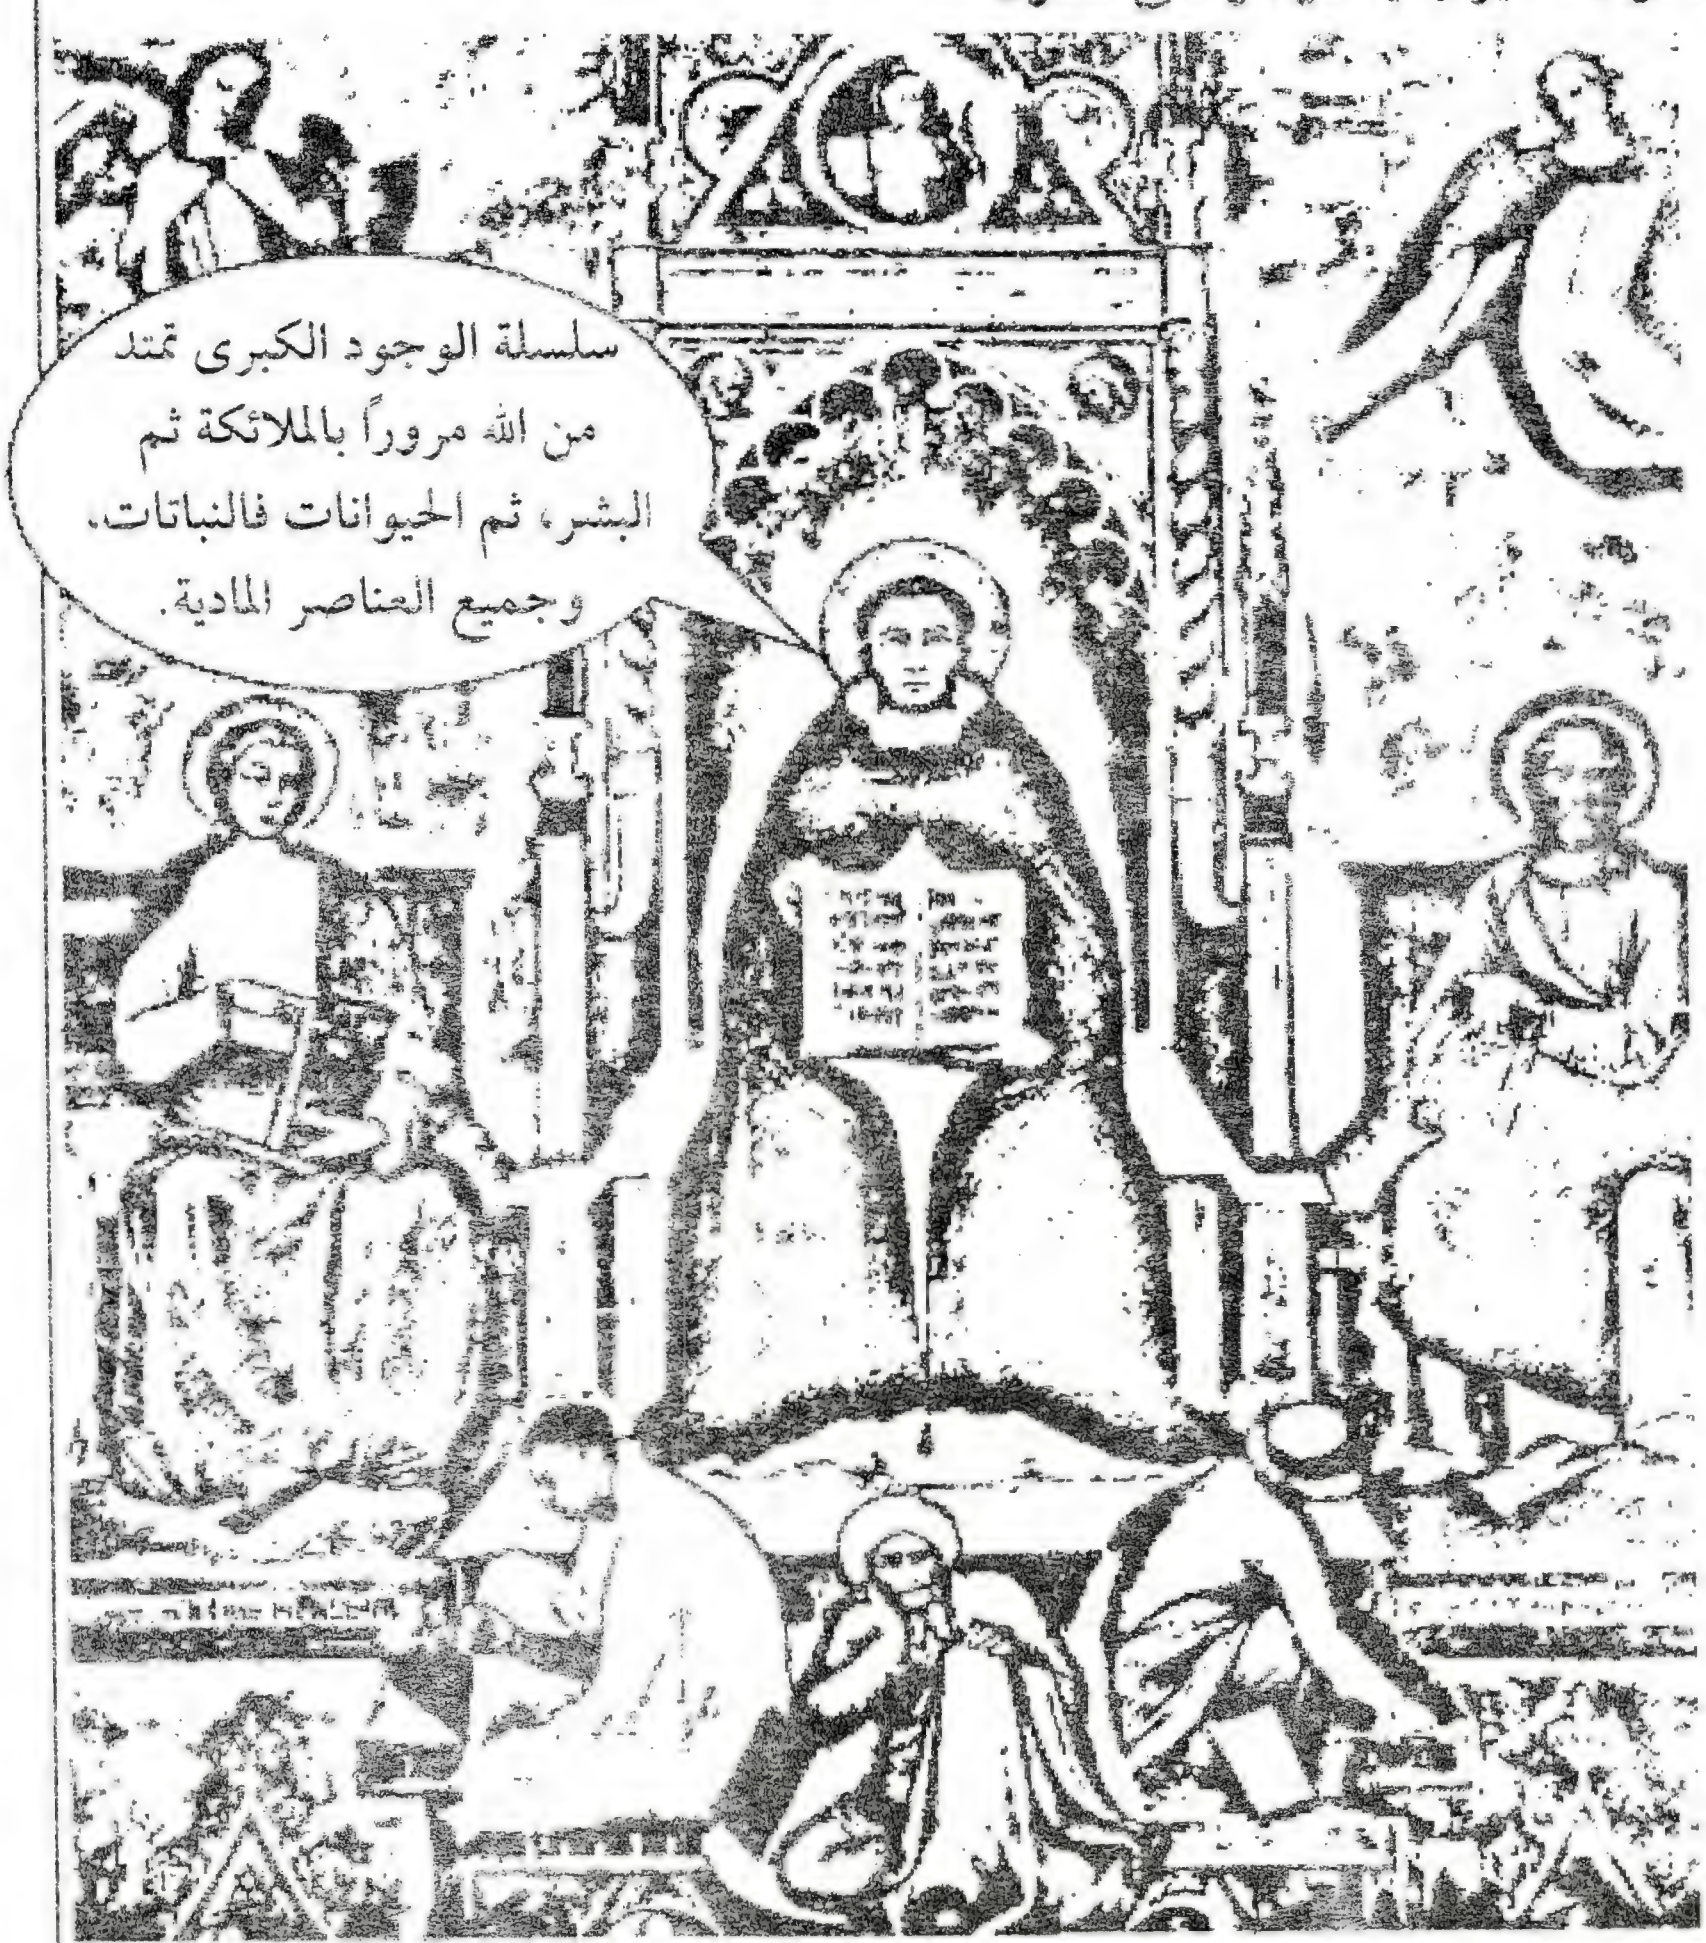 سلسلة الوجود الكبرى تمتد
من الله مروراً بالملائكة ثم
البشر، ثم الحيوانات فالنباتات.
وجميع العناصر المادية.